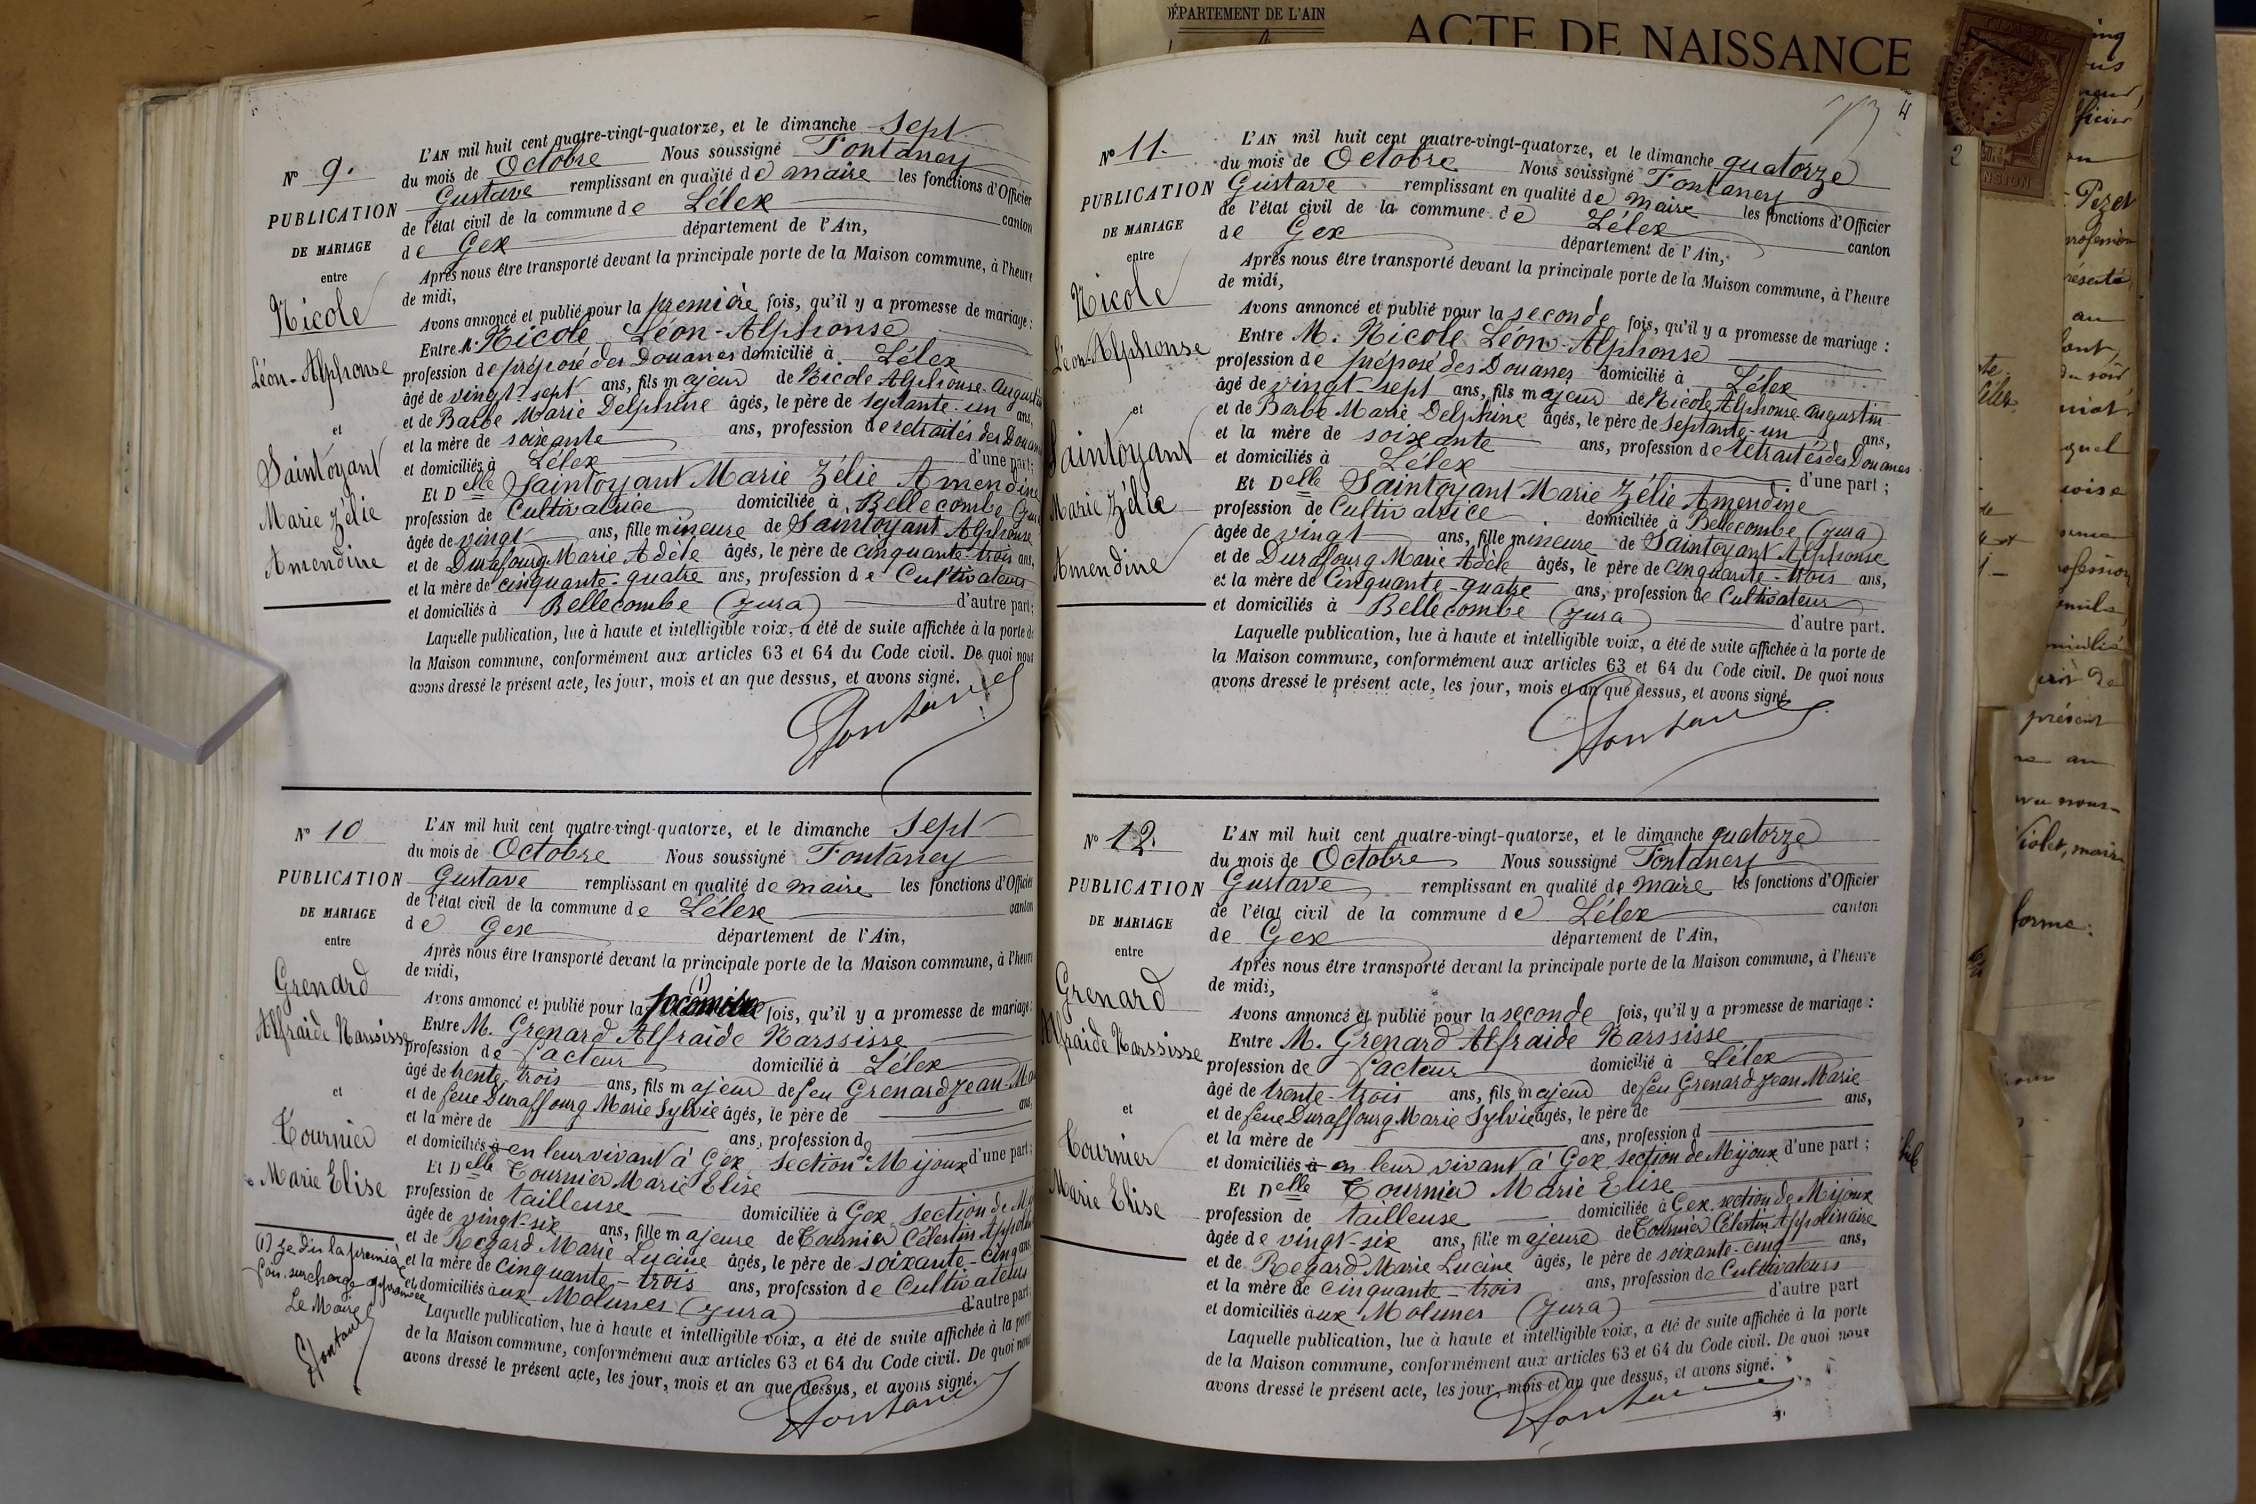 DÉPARTEMENT DE L'AIN
ACTE DE NAISSANCE
N° 9.
PUBLICATION
DE MARIAGE
entre
Nicole
Léon-Alphonse
et
Saintoyant
Marie Zélie
Amendine
L'AN mil huit cent quatre-vingt-quatorze, et le dimanche Sept
du mois de Octobre Nous soussigné Fontaney
Gustave remplissant en qualité de maire les fonctions d'Officier
de l'état civil de la commune de Lélex canton
de Gex département de l'Ain,
Après nous être transporté devant la principale porte de la Maison commune, à l'heure
de midi,
Avons annoncé et publié pour la première fois, qu'il y a promesse de mariage :
Entre M. Nicole Léon-Alphonse
profession de préposé des Douanes domicilié à Lélex
âgé de vingt-sept ans, fils majeur de Nicole Alphonse-Augustin
et de Barbe Marie Delphine âgés, le père de septante-un ans,
et la mère de soixante ans, profession de retraités des Douanes
et domiciliés à Lélex d'une part;
Et Delle Saintoyant Marie Zélie Amendine
profession de Cultivatrice domiciliée à Bellecombe (Jura
âgée de vingt ans, fille mineure de Saintoyant Alphonse
et de Durafourg Marie Adèle âgés, le père de cinquante-trois ans,
et la mère de cinquante-quatre ans, profession de Cultivateurs
et domiciliés à Bellecombe (Jura) d'autre part;
Laquelle publication, lue à haute et intelligible voix, a été de suite affichée à la porte de
la Maison commune, conformément aux articles 63 et 64 du Code civil. De quoi nous
avons dressé le présent acte, les jour, mois et an que dessus, et avons signé.
GFontaney
N° 10
PUBLICATION
DE MARIAGE
entre
Grenard
Alfraide Narssisse
et
Tournier
Marie Elise
(1) Je dis la première
fois. surcharge approuvée
Le Maire
GFontaney
L'AN mil huit cent quatre-vingt-quatorze, et le dimanche Sept
du mois de Octobre Nous soussigné Fontaney
Gustave remplissant en qualité de maire les fonctions d'Officier
de l'état civil de la commune de Lélex canton
de Gex département de l'Ain,
Après nous être transporté devant la principale porte de la Maison commune, à l'heure
de midi,
Avons annoncé et publié pour la (1) fois, qu'il y a promesse de mariage :
Entre M. Grenard Alfraide Narssisse
profession de facteur domicilié à Lélex
âgé de trente-trois ans, fils majeur de feu Grenard Jean-Ma
et de feue Duraffourg Marie Sylvie âgés, le père de ans,
et la mère de ans, profession d
et domiciliés à en leur vivant à Gex, section de Mijoux d'une part;
Et Delle Tournier Marie Elise
profession de tailleuse domiciliée à Gex, section de Mi
âgée de vingt-six ans, fille majeure de Tournier Célestin Appolin
et de Regard Marie Lucine âgés, le père de soixante-cinq ans
et la mère de cinquante-trois ans, profession de Cultivateurs
et domiciliés aux Molunes (Jura) d'autre part.
Laquelle publication, lue à haute et intelligible voix, a été de suite affichée à la porte
de la Maison commune, conformément aux articles 63 et 64 du Code civil. De quoi nous
avons dressé le présent acte, les jour, mois et an que dessus, et avons signé.
GFontaney
4
N° 11.
PUBLICATION
DE MARIAGE
entre
Nicole
Léon-Alphonse
et
Saintoyant
Marie Zélie
Amendine
L'AN mil huit cent quatre-vingt-quatorze, et le dimanche quatorze
du mois de Octobre Nous soussigné Fontaney
Gustave remplissant en qualité de maire les fonctions d'Officier
de l'état civil de la commune de Lélex canton
de Gex département de l'Ain,
Après nous être transporté devant la principale porte de la Maison commune, à l'heure
de midi,
Avons annoncé et publié pour la seconde fois, qu'il y a promesse de mariage :
Entre M. Nicole Léon-Alphonse
profession de préposé des Douanes domicilié à Lélex
âgé de vingt-sept ans, fils majeur de Nicole Alphonse Augustin
et de Barbe Marie Delphine âgés, le père de septante-un ans,
et la mère de soixante ans, profession de retraités des Douanes
et domiciliés à Lélex d'une part ;
Et Delle Saintoyant Marie Zélie Amendine
profession de Cultivatrice domiciliée à Bellecombe (Jura)
âgée de vingt ans, fille mineure de Saintoyant Alphonse
et de Durafourg Marie Adèle âgés, le père de cinquante-trois ans,
et la mère de Cinquante-quatre ans, profession de Cultivateurs
et domiciliés à Bellecombe (Jura) d'autre part.
Laquelle publication, lue à haute et intelligible voix, a été de suite affichée à la porte de
la Maison commune, conformément aux articles 63 et 64 du Code civil. De quoi nous
avons dressé le présent acte, les jour, mois et an que dessus, et avons signé.
GFontaney
N° 12.
PUBLICATION
DE MARIAGE
entre
Grenard
Alfraide Narssisse
et
Tournier
Marie Elise
L'AN mil huit cent quatre-vingt-quatorze, et le dimanche quatorze
du mois de Octobre Nous soussigné Fontaney
Gustave remplissant en qualité de maire les fonctions d'Officier
de l'état civil de la commune de Lélex canton
de Gex département de l'Ain,
Après nous être transporté devant la principale porte de la Maison commune, à l'heure
de midi,
Avons annoncé et publié pour la seconde fois, qu'il y a promesse de mariage :
Entre M. Grenard Alfraide Narssisse
profession de facteur domicilié à Lélex
âgé de trente-trois ans, fils majeur de feu Grenard Jean Marie
et de feue Duraffourg Marie Sylvie âgés, le père de ans,
et la mère de ans, profession d
et domiciliés à en leur vivant à Gex, section de Mijoux d'une part ;
Et Delle Tournier Marie Elise
profession de tailleuse domiciliée à Gex, section de Mijoux
âgée de vingt-six ans, fille majeure de Tournier Célestin Appolinaire
et de Regard Marie Lucine âgés, le père de soixante-cinq ans,
et la mère de cinquante-trois ans, profession de Cultivateurs
et domiciliés aux Molunes (Jura) d'autre part
Laquelle publication, lue à haute et intelligible voix, a été de suite affichée à la porte
de la Maison commune, conformément aux articles 63 et 64 du Code civil. De quoi nous
avons dressé le présent acte, les jour, mois et an que dessus, et avons signé.
GFontaney
2
Pezet
profession
au
quel
profession
présent
Violet, maire
forme.